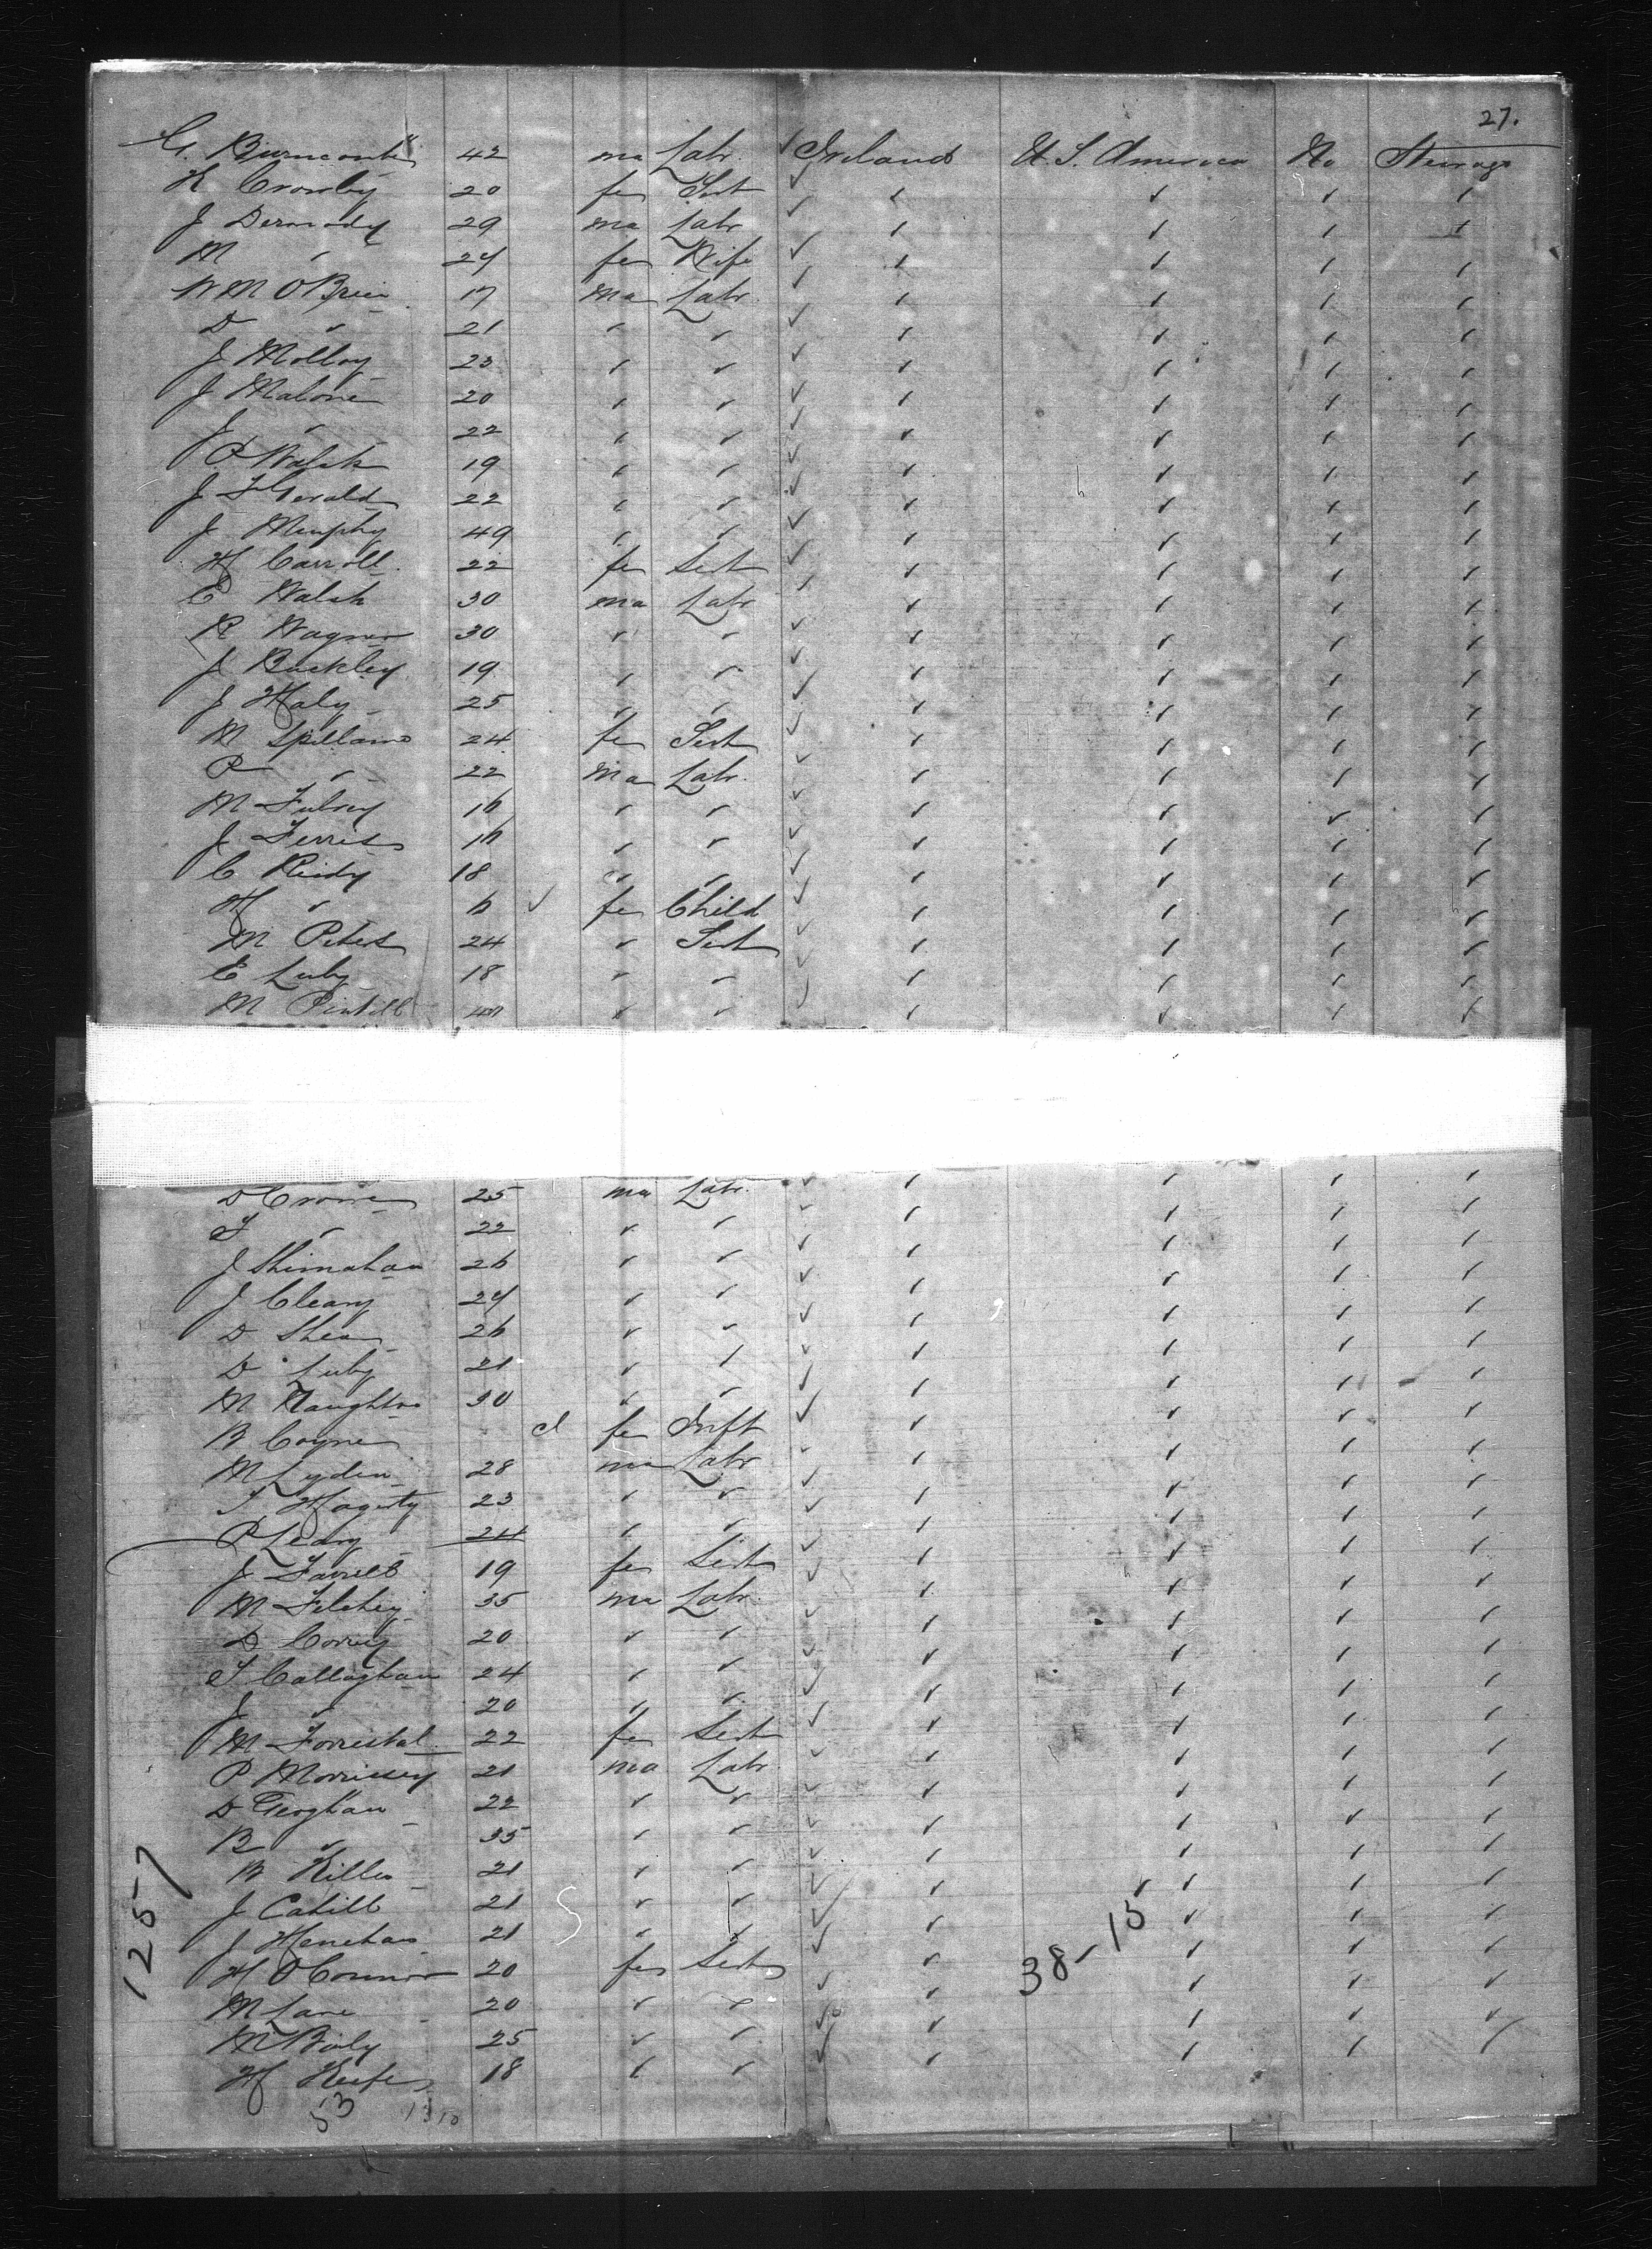 27.
G. Burnconte 42 ma Labr. ✓ Ireland U.S. America No Steerage
K Crosby 20 fe Sert ✓ ✓ ✓ ✓ ✓
J Dermody 29 ma Labr ✓ ✓ ✓ ✓ ✓
M " 24 fe Wife ✓ ✓ ✓ ✓ ✓
Wm O Brien 17 ma Labr ✓ ✓ ✓ ✓ ✓
D " 21 " " ✓ ✓ ✓ ✓ ✓
J Molloy 23 " " ✓ ✓ ✓ ✓ ✓
J Malone 20 " " ✓ ✓ ✓ ✓ ✓
J " 22 " " ✓ ✓ ✓ ✓ ✓
P Walsh 19 " " ✓ ✓ ✓ ✓ ✓
J FGerald 22 " " ✓ ✓ ✓ ✓ ✓
J Murphy 49 " " ✓ ✓ ✓ ✓ ✓
H Carroll 22 fe Sert ✓ ✓ ✓ ✓ ✓
E Walsh 30 ma Labr ✓ ✓ ✓ ✓ ✓
R Wagner 30 " " ✓ ✓ ✓ ✓ ✓
J Buckley 19 " " ✓ ✓ ✓ ✓ ✓
J Haly 25 " " ✓ ✓ ✓ ✓ ✓
M Spillane 24 fe Sert ✓ ✓ ✓ ✓ ✓
P " 22 ma Labr. ✓ ✓ ✓ ✓ ✓
M 16 " " ✓ ✓ ✓ ✓ ✓
J Ferris " " ✓ ✓ ✓ ✓ ✓
C Reidy 18 " " ✓ ✓ ✓ ✓ ✓
H " 6 ✓ fe Child ✓ ✓ ✓ ✓ ✓
M Peters 24 " Sert ✓ ✓ ✓ ✓ ✓
E Luby 18 " " ✓ ✓ ✓ ✓ ✓
M " " ✓ ✓ ✓ ✓ ✓
D Crone 25 ma Labr. ✓ ✓ ✓ ✓ ✓
T " 22 " " ✓ ✓ ✓ ✓ ✓
J Shinahan 26 " " ✓ ✓ ✓ ✓ ✓
J Cleary 24 " " ✓ ✓ ✓ ✓ ✓
D Shea 26 " " ✓ ✓ ✓ ✓ ✓
D Luby 21 " " ✓ ✓ ✓ ✓ ✓
M Naughton 30 " " ✓ ✓ ✓ ✓ ✓
B Coyne d fe Inft ✓ ✓ ✓ ✓ ✓
M Lyden 28 ma Labr ✓ ✓ ✓ ✓ ✓
T Hagerty 23 " " ✓ ✓ ✓ ✓ ✓
P Leary 24 " " ✓ ✓ ✓ ✓ ✓
J Farrell 19 fe Sert ✓ ✓ ✓ ✓ ✓
M 35 ma Labr ✓ ✓ ✓ ✓ ✓
D Correy 20 " " ✓ ✓ ✓ ✓ ✓
T Callaghan 24 " " ✓ ✓ ✓ ✓ ✓
J " 20 " " ✓ ✓ ✓ ✓ ✓
M Forrestal 22 fe Sert ✓ ✓ ✓ ✓ ✓
P Morrissey 21 ma Labr ✓ ✓ ✓ ✓ ✓
D Geoghan 22 " " ✓ ✓ ✓ ✓ ✓
B " 35 " " ✓ ✓ ✓ ✓ ✓
B 21 " " ✓ ✓ ✓ ✓ ✓
J Cahill 21 " " ✓ ✓ ✓ ✓ ✓
J 21 " " ✓ ✓ ✓ ✓ ✓
H O Connor 20 fe Sert ✓ ✓ ✓ ✓ ✓
M Lane 20 " " ✓ ✓ ✓ ✓ ✓
M Baly 25 " " ✓ ✓ ✓ ✓ ✓
H Keefe 18 " " ✓ ✓ ✓ ✓ ✓
53 1310
1257
38-15